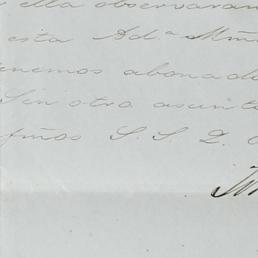 ella observaran
esta Ad.ª
enemos abonado
Sin otro asunto
S. S. Q.